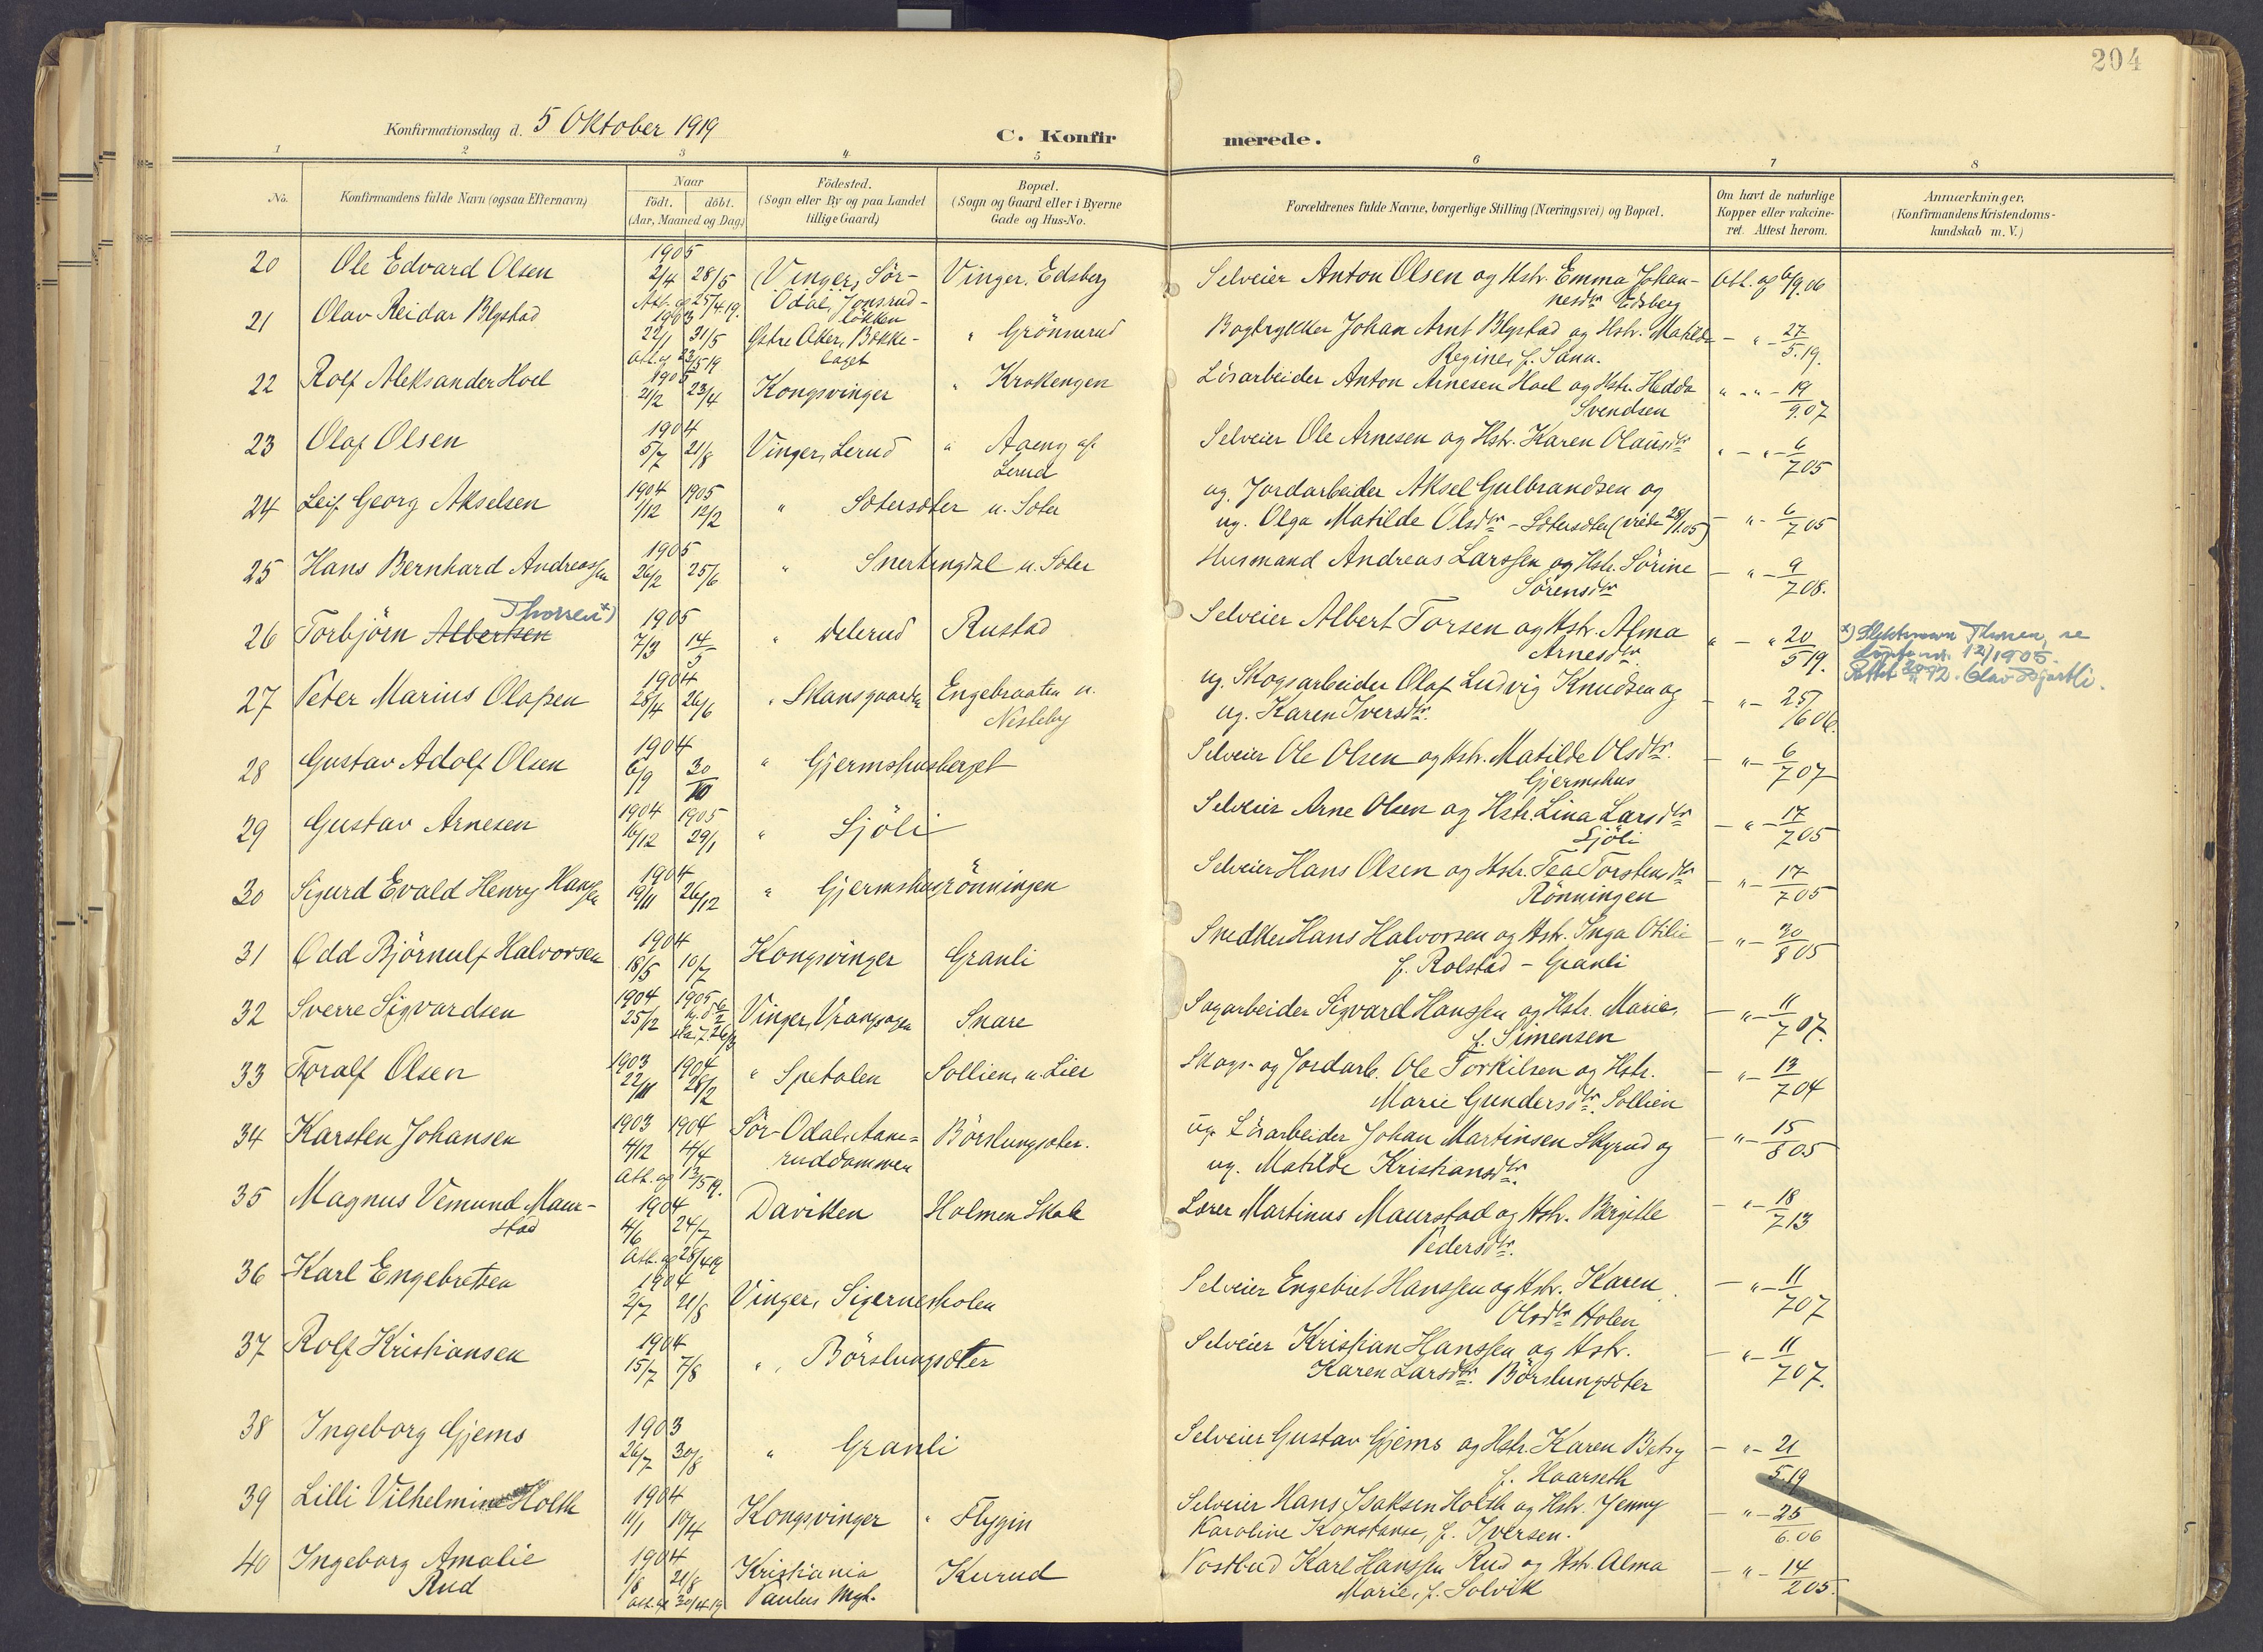 204
Konfirmationsdag d. 5 Oktober 1919
C. Konfirmerede.
1 2 3 4 5 6 7 8
No.
Konfirmandens fulde Navn (ogsaa Efternavn)
Naar
födt. döbt.
(Aar, Maaned og Dag)
Födested.
(Sogn eller By og paa Landet
tillige Gaard)
Bopæl.
(Sogn og Gaard eller i Byerne
Gade og Hus-No.
Forældrenes fulde Navne, borgerlige Stilling (Næringsvei) og Bopæl.
Om havt de naturlige
Kopper eller vakcine-
ret. Attest herom.
Anmærkninger.
(Konfirmandens Kristendoms-
kundskab m. V.)
1905
20 Ole Edvard Olsen 2/4 28/5 Vinger, Sör- Vinger, Edsberg Selveier Anton Olsen og Hstr. Emma Johan- Att. af 6/9.06
Att. af 25/4.19. Odal, Jonsrud- nesdtr Edsberg
1903 lökken
21 Olav Reidar Blystad 22/1 31/5 Østre Aker, Bække- " Grönnerud Bogtrykker Johan Arnt Blystad og Hstr. Matilde - " - 27/5.19.
Att. af 23/5 19 laget Regine, f. Sann.
1905
22 Rolf Aleksander Hoel 21/2 23/4 Kongsvinger " Krokengen Lösarbeider Anton Arnesen Hoel og Hstr. Hedda " - " - 19/9.07
Svendsen
1904
23 Olaf Olsen 5/7 21/8 Vinger, Lerud " Aaeng af Selveier Ole Arnesen og Hstr. Karen Olausdtr " - " - 6/7 05
Lerud
1904 1905 ug. Jordarbeider Aksel Gulbrandsen og
24 Leif Georg Akselsen 1/12 12/2 " Sætersæter u. Soler ug. Olga Matilde Olsdtr - Sætersæter (viede 28/1.05) - " - 6/7 05
1905
25 Hans Bernhard Andreassen 26/2 25/6 " Snertingdal u. Soler Husmand Andreas Larssen og Hstr. Sörine - " - 9/7 08.
Sörensdtr
Thorsen x) 1905
26 Torbjörn Albertsen 7/3 14/5 " Rustad Selveier Albert Torsen og Hstr. Alma " - " 20/5 19.
Arnesdtr
x) Slektsnavn Thorsen, se
12/1905.
1904
27 Peter Marius Olafsen 28/4 26/6 " Skansgaarden Engebraaten u. ug. Skogsarbeider Olaf Ludvig Knudsen og - " - 25/6 06
Nesleby ug. Karen Iversdtr.
1904
28 Gustav Adolf Olsen 6/9 30/10 " Gjermshusberget Selveier Ole Olsen og Hstr. Matilde Olsdtr. - " - 6/7 07
Gjermshus
1904 1905
29 Gustav Arnesen 16/12 29/1 " Sjöli Selveier Arne Olsen og Hstr. Lina Larsdtr - " - 17/7 05
Sjöli
1904
30 Sigurd Evald Henry Hanssen 19/11 26/12 " Gjermshusrönningen Selveier Hans Olsen og Hstr. Tea Torstensdtr - " - 17/7 05
Rönningen
1904
31 Odd Björnulf Halvorsen 18/5 10/7 Kongsvinger Granli Snedker Hans Halvorsen og Hstr. Inga Otilie - " - 30/8 05
f. Rolstad - Granli
1904 1905
32 Sverre Sigvardsen 25/12 Vinger, Vrangsagen Snare Sagarbeider Sigvard Hanssen og Hstr. Marie, - " - 11/7 07.
f. Simensen
1903 1904
33 Toralf Olsen 22/11 28/2 " Spetalen Sollien, u. Lier Skogs- og Jordarb. Ole Torkilsen og Hstr. - " - 13/7 04
Marie Gundersdtr. Sollien
1903 1904
34 Karsten Johansen 4/12 4/4 Sör-Odal, Aane- Börslungsæter. ug. Lösarbeider Johan Martinsen Skyrud og - " - 15/8 05
Att. af 13/5 19. ruddammen ug. Matilde Kristiansdtr.
35 Magnus Vemund Maur- 1904
stad 4/6 24/7 Daviken Holmen Skole Lærer Martinus Maurstad og Hstr. Bergitte - " - 18/7 13
Att. af 28/4 19 Pedersdtr.
1904
36 Karl Engebretsen 2/7 21/8 Vinger, Sigernesholen Selveier Engebret Hanssen og Hstr. Karen - " - 11/7 07
Olsdtr Holen
1904
37 Rolf Kristiansen 15/7 7/8 " Börslungsæter Selveier Kristian Hanssen og Hstr. - " - 11/7 07.
Karen Larsdtr. Börslungsæter
1903
38 Ingeborg Gjems 26/7 30/8 " Granli Selveier Gustav Gjems og Hstr. Karen Betsy - " - 21/5.19
f. Haarseth
1904
39 Lilli Vilhelmine Holth 11/1 10/4 Kongsvinger " Flygin Selveier Hans Isaksen Holth og Hstr. Jenny - " - 25/6.06
Karoline Konstanse, f. Iversen.
1904
40 Ingeborg Amalie 1/8 21/8 Kristiania Kurud Postbud Karl Hanssen Rud og Hstr. Alma - " - 14/2 05.
Rud Att. af 30/4 19 Paulus Mgh. Marie, f. Solvik